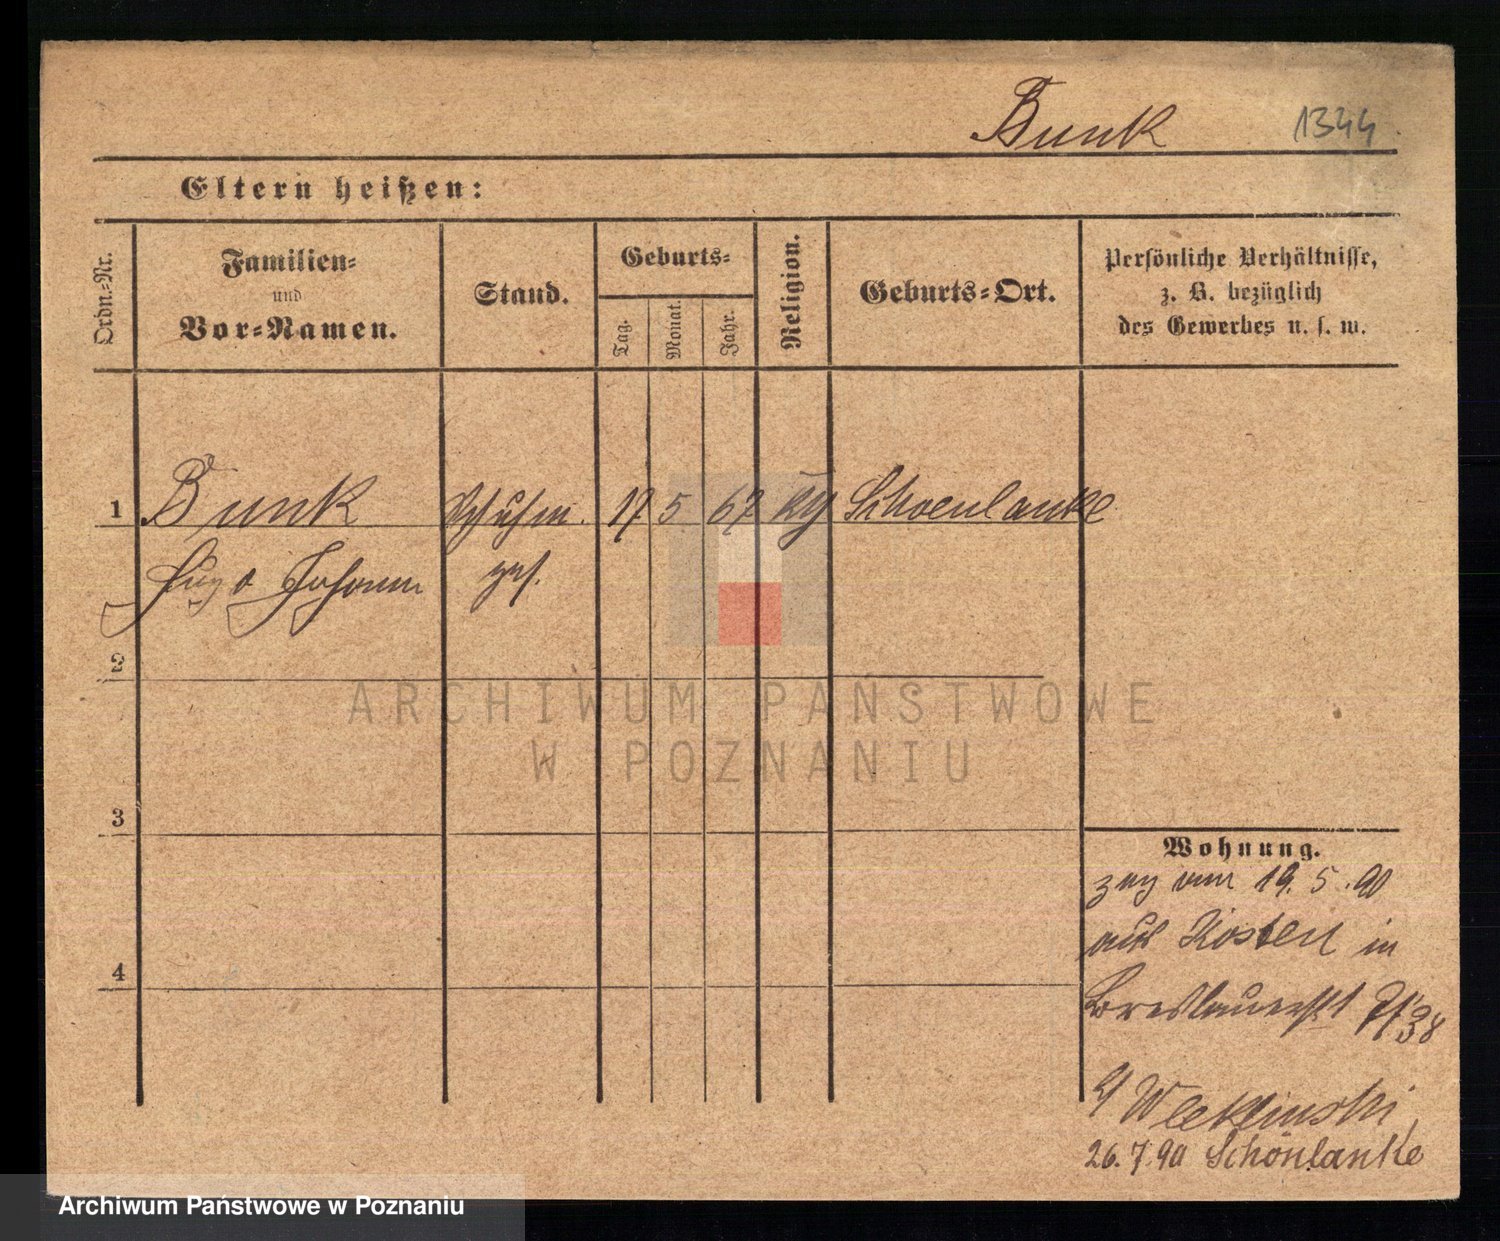 Bunk 1344
Eltern heißen:
Ordn.-Nr.
Familien-
und
Vor-Namen.
Stand.
Geburts-
Tag.
Monat.
Jahr.
Religion.
Geburts-Ort.
Persönliche Verhältnisse,
z. B. bezüglich
des Gewerbes u. s. w.
1 Bunk Schuhm. 17 5 67 Schoenlanke
Hugo Johann ges.
2
ARCHIWUM PAŃSTWOWE
W POZNANIU
3
Wohnung.
zug vom 19. 5. 90
aus Kosten in
4
Breslauerst
26.7.90 Schönlanke
Archiwum Państwowe w Poznaniu